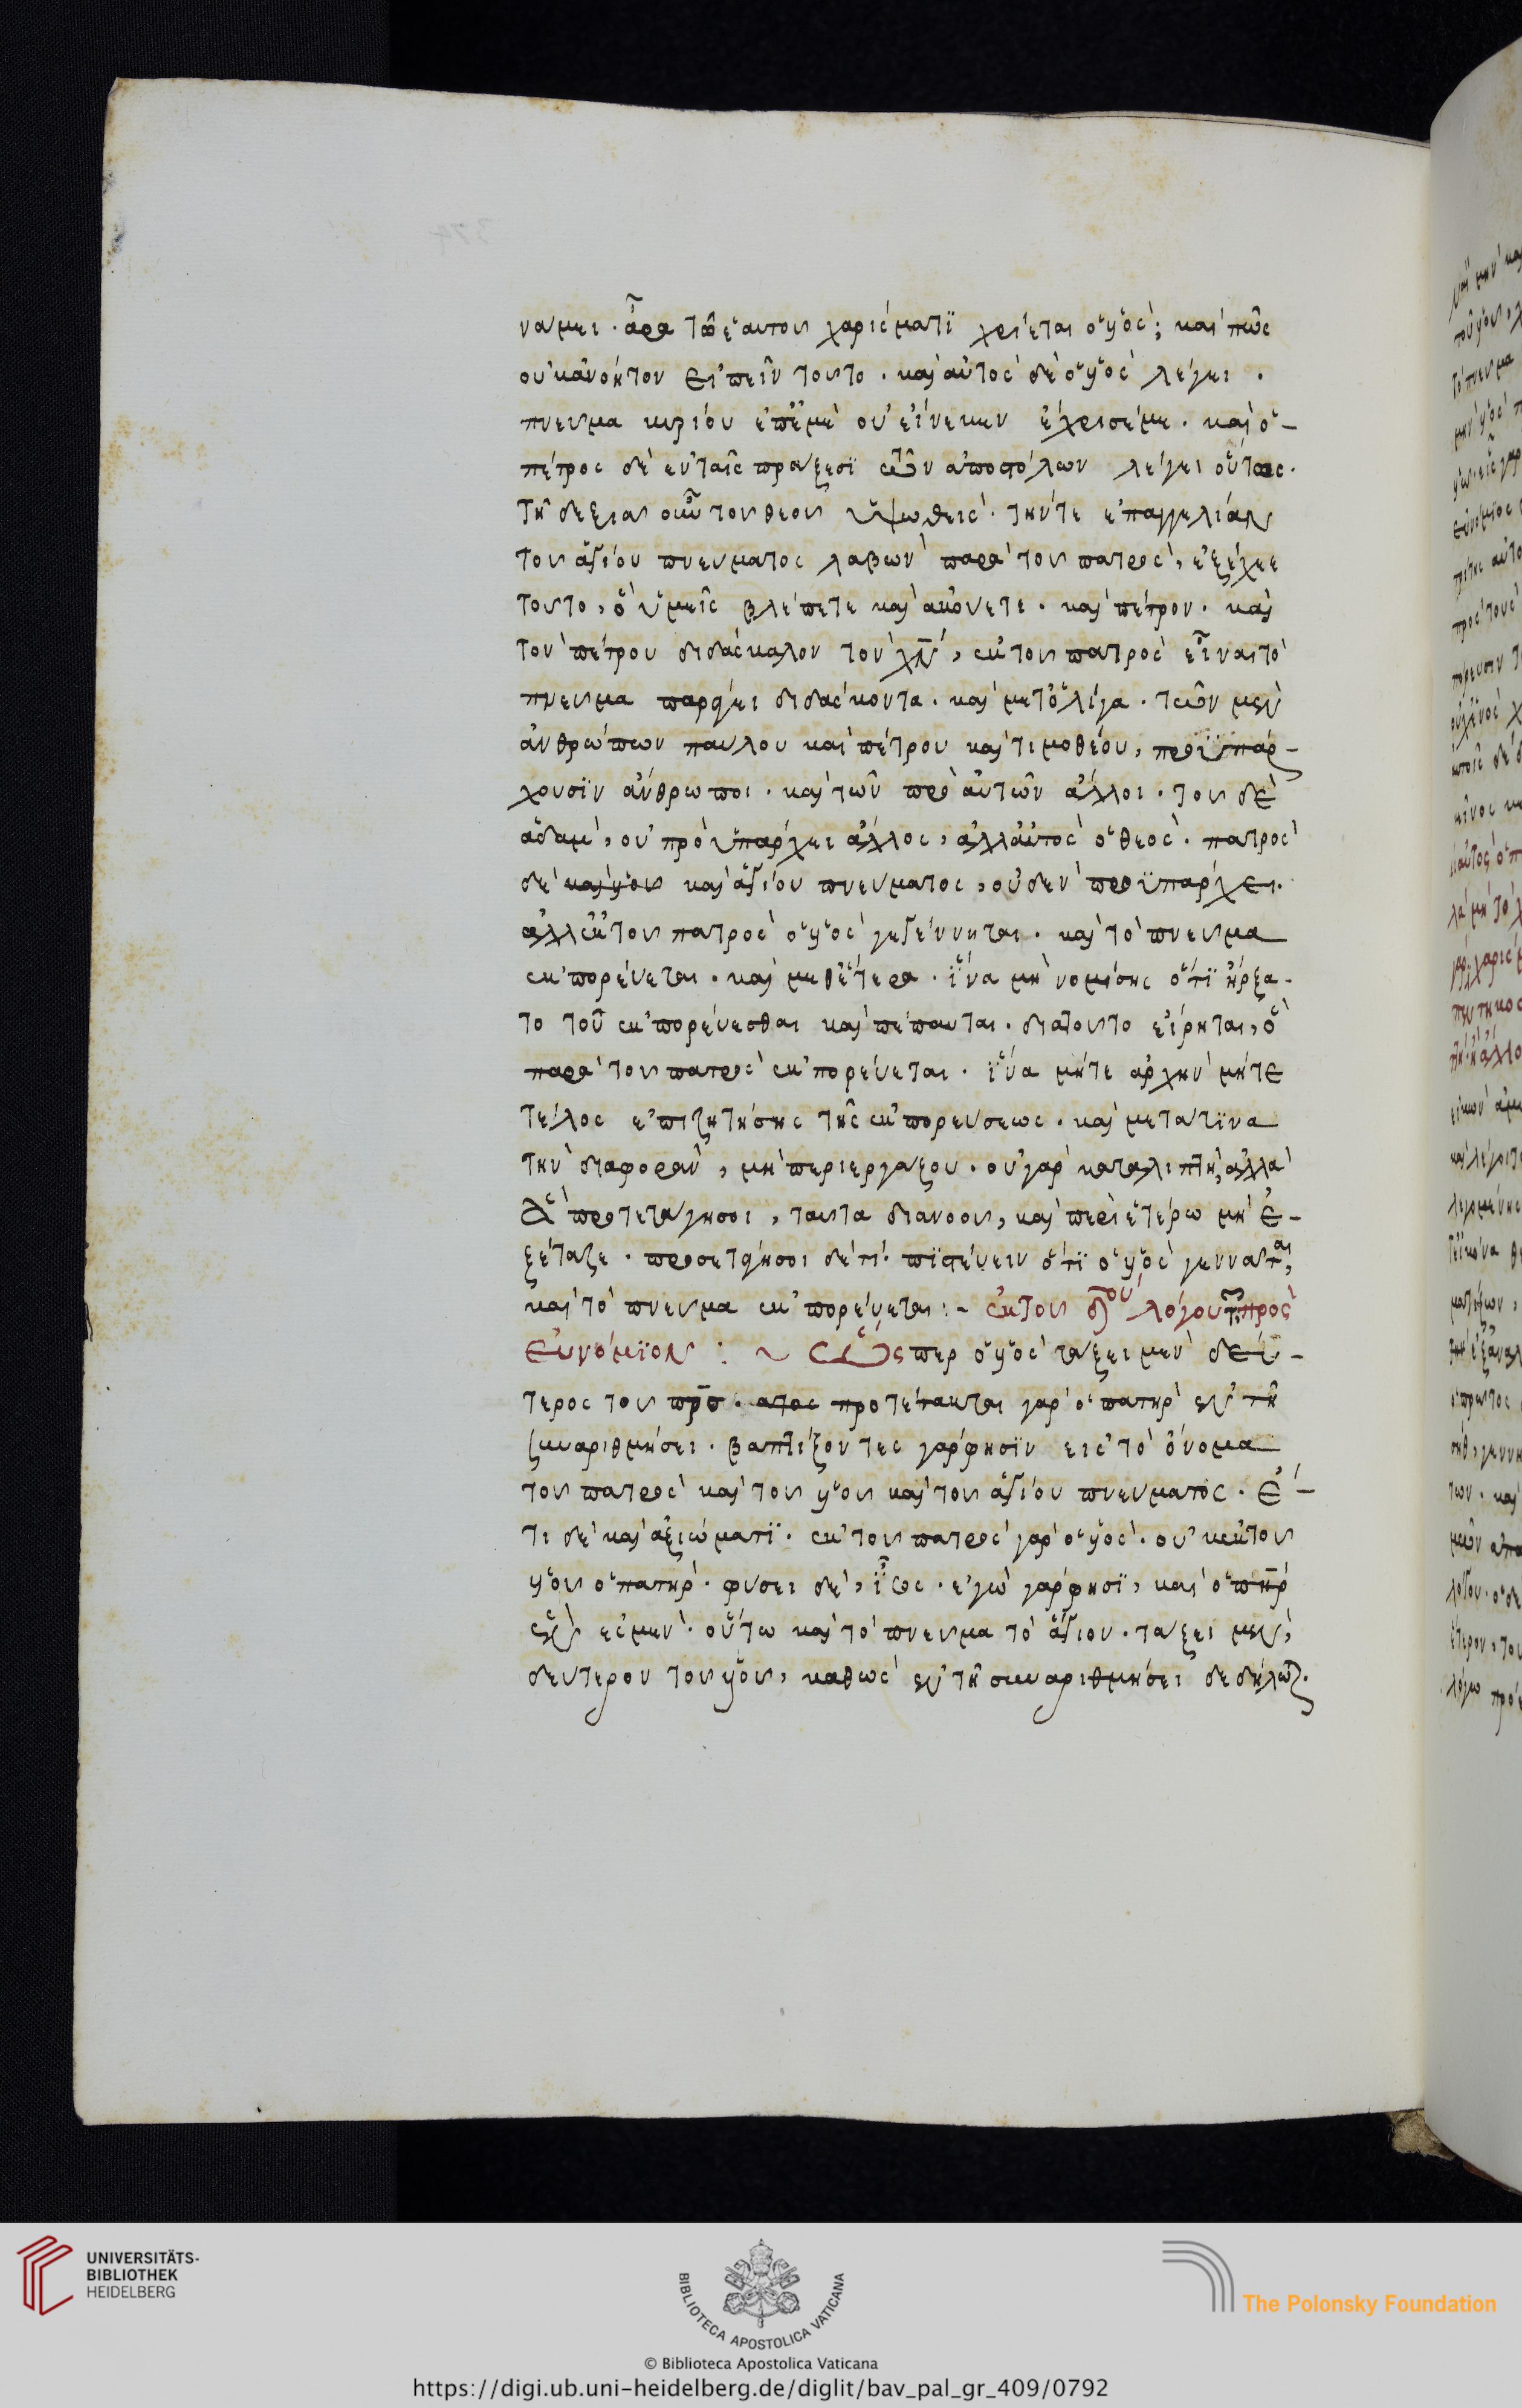 νάμει · ἆρα τῶ ἑαυτοῦ χαρίσματϊ χρίεται ὁ υἱός; καὶ πῶς
οὐκ ἀνόητον εἰπεῖν τοῦτο · καὶ αὐτὸς δὲ ὁ υἱὸς λέγει ·
πνεῦμα κυρίου ἐπ' ἐμὲ οὗ εἵνεκεν ἔχρισέ με · καὶ ὁ-
πέτρος δὲ ἐν ταῖς πράξεσϊ τῶν ἀποστόλων λέγει οὕτως ·
τῆ δεξιᾶ οὖν τοῦ θεοῦ ὑψωθεὶς · τήν τε ἐπαγγελίαν
τοῦ ἁγίου πνεύματος λαβὼν παρὰ τοῦ πατρὸς, ἐξέχεε
τοῦτο, ὃ ὑμεῖς βλέπετε καὶ ἀκούετε · καὶ πέτρον · καὶ
τὸν πέτρου διδάσκαλον τὸν χν, ἐκ τοῦ πατρὸς εἶναι τὸ
πνεῦμα παρέχει διδάσκοντα · καὶ μετ' ὀλίγα · τῶν μὲν
ἀνθρώπων παύλου καὶ πέτρου καὶ τιμοθέου, προϋπάρ-
χουσϊν ἄνθρωποι · καὶ τῶν πρὸ αὐτῶν ἄλλοι · τοῦ δὲ
ἀδὰμ, οὐ προϋπάρχει ἄλλος, ἀλλ' αὐτὸς ὁ θεὸς · πατρὸς
δὲ καὶ υἱοῦ καὶ ἁγίου πνεύματος, οὐδὲν προϋπάρχει ·
ἀλλ' ἐκ τοῦ πατρὸς ὁ υἱὸς γεγέννηται · καὶ τὸ πνεῦμα
ἐκπορεύεται · καὶ μεθ' ἕτερα · ἵνα μὴ νομίσης ὅτϊ ἤρξα-
το τοῦ ἐκπορεύεσθαι καὶ πέπαυται · διατοῦτο εἴρηται, ὃ
παρὰ τοῦ πατρὸς ἐκπορεύεται · ἵνα μήτε ἀρχὴν μήτε
τέλος ἐπιζητήσης τῆς ἐκπορεύσεως · καὶ μετά τϊνα
τὴν διαφορὰν, μὴ περιεργάζου · οὐ γὰρ καταλιπτή, ἀλλὰ
ἃ προτέτακταί σοι, ταῦτα διανοοῦ, καὶ περὶ ἑτέρω μὴ ἐ-
ξέταζε · προσετάγη σοι δέ τι πϊστεύειν ὅτϊ ὁ υἱὸς γεννᾶται,
καὶ τὸ πνεῦμα ἐκπορεύεται :- ἐκ τοῦ λόγου τοῦ πρὸς
εὐνόμϊον : ~ ὥσπερ ὁ υἱὸς τάξει μὲν δεύ-
τερος τοῦ πρσ · προτέτακται γὰρ ὁ πατὴρ ἐν τῆ
συναριθμήσει · βαπτίζοντες γὰρ φησϊν εἰς τὸ ὄνομα
τοῦ πατρὸς καὶ τοῦ υἱοῦ καὶ τοῦ ἁγίου πνεύματος · ἔ-
τι δὲ καὶ ἀξιώματϊ · ἐκ τοῦ πατρὸς γὰρ ὁ υἱὸς · οὐκ ἐκ τοῦ
υἱοῦ ὁ πατὴρ · φύσει δὲ, ἴσος · ἐγὼ γὰρ φησϊ, καὶ ὁ πηρ
ἓν ἐσμὲν · οὕτω καὶ τὸ πνεῦμα τὸ ἅγιον · τάξει μὲν,
δεύτερον τοῦ υἱοῦ, καθὼς ἐν τῆ συναριθμήσει δεδήλωται ·
UNIVERSITÄTS-
BIBLIOTHEK
HEIDELBERG
BIBLIOTECA APOSTOLICA VATICANA
The Polonsky Foundation
© Biblioteca Apostolica Vaticana
https://digi.ub.uni-heidelberg.de/diglit/bav_pal_gr_409/0792